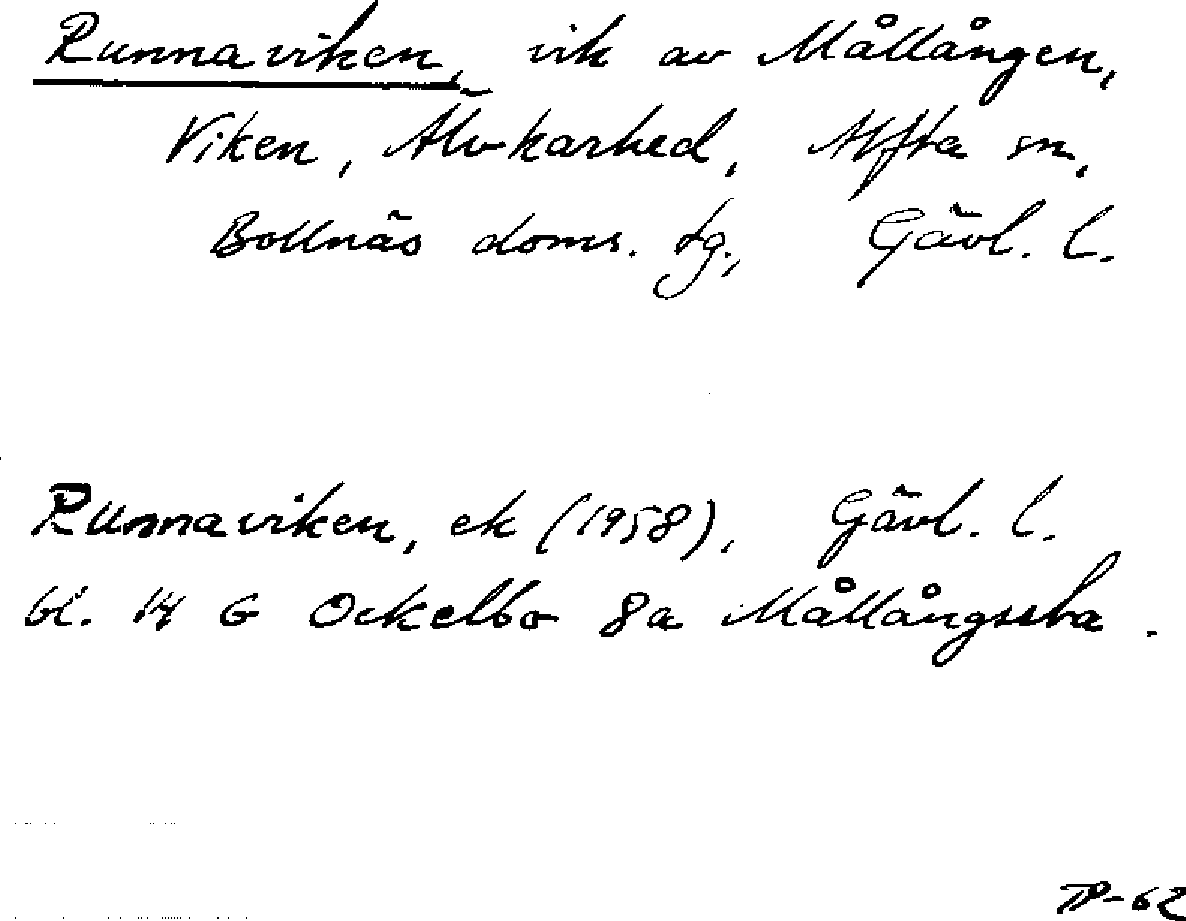 Runnaviken, vik av Mållången,
Viken, Älvkarhed, Alfta sn,
Bollnäs doms. tg., Gävl. l.
Runnaviken, ek (1958), Gävl. l.
bl. 14 G Ockelbo 8a Mållångssta.
TP-62